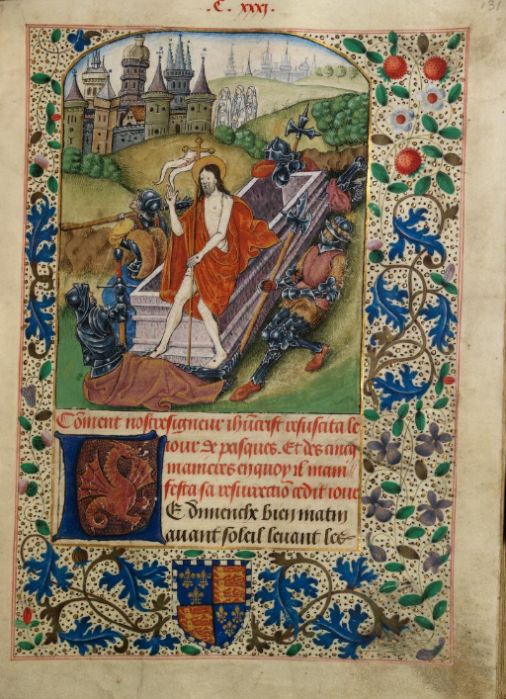 C. xxxi.
131
Com̄ent nostreseigneur ihūcrist resuscita le
iour de pasques. Et des cincq
manieres en quoy il mani
festa sa resurrectiō cedit iour
E dimenche bien matin
auant soleil leuant les